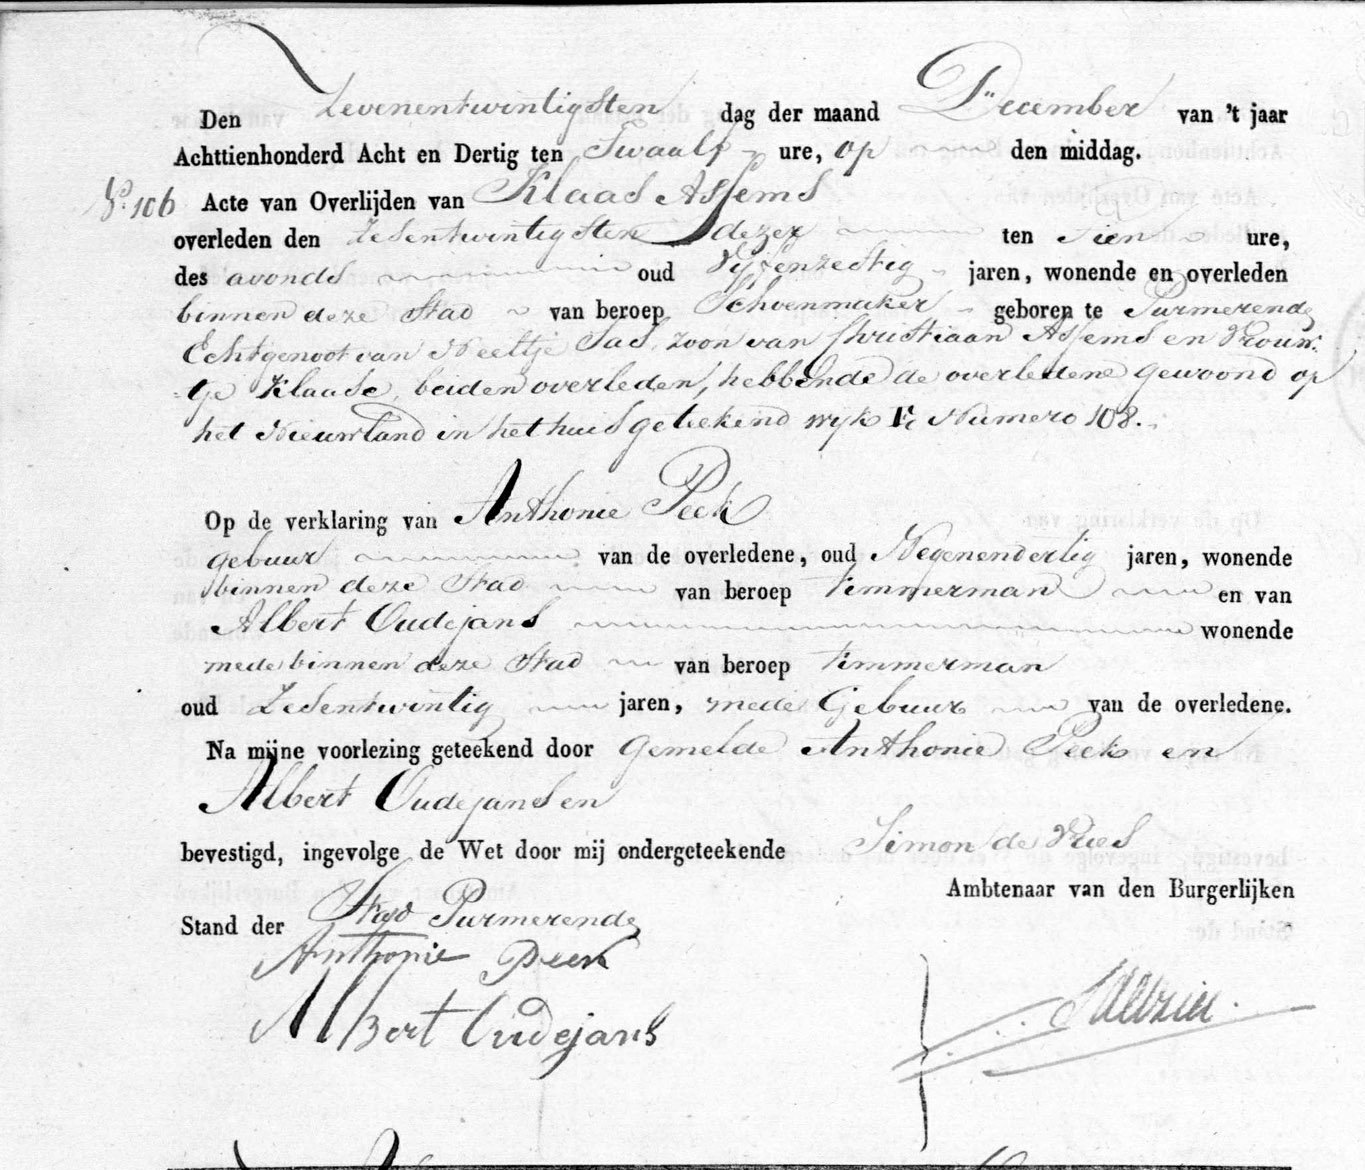 Den Zevenentwintigsten dag der maand December van 't jaar
Achttienhonderd Acht en Dertig ten Twaalf ure, op den middag.
No. 106 Acte van Overlijden van Klaas Assems
overleden den Zesentwintigsten dezer ten Tien ure,
des avonds oud Vijfenzestig jaren, wonende en overleden
binnen deze Stad van beroep Schoenmaker geboren te Purmerende
Echtgenoot van Neeltje Sas, zoon van Christiaan Assems en Vrouw-
tje Klaase, beiden overleden, hebbende de overledene gewoond op
het Nieuwland in het huis geteekend wijk E Numero 108.
Op de verklaring van Anthonie Peek
gebuur van de overledene, oud Negenendertig jaren, wonende
binnen deze Stad van beroep timmerman en van
Albert Oudejans wonende
mede binnen deze Stad van beroep timmerman
oud Zesentwintig jaren, mede Gebuur van de overledene.
Na mijne voorlezing geteekend door gemelde Anthonie Peek en
Albert Oudejans en
bevestigd, ingevolge de Wet door mij ondergeteekende Simon de Vries
Ambtenaar van den Burgerlijken
Stand der Stad Purmerende
Anthonie Peek
Albert Oudejans